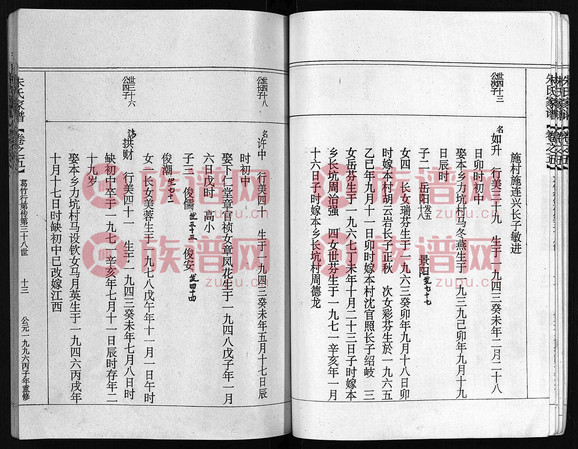 朱氏家谱【卷之五】
施村施连兴长子敏进
名 如升 行美三十九 生于一九四三癸未年二月二十八
日卯时初中
娶本乡力坑村马冬燕生于一九五三九己卯年九月十九
日辰时
子二 岳阳 景阳
女四 长女瑞芬生于一九六三癸卯年九月十八日卯
时嫁本村胡云岩长子正秋 次女彩芬生於一九六五
乙巳年九月十一日卯时嫁本村沈官照长子绍岐 三
女岳芬生于一九六七丁未年十月二十三日子时嫁本
乡长坑周治强 四女世芬生于一九七一辛亥年一月
十六日子时嫁本乡长坑村周德龙
名 许中 行美四十 生于一九四三癸未年五月十七日辰
时初中
娶下仁堂章官桢女章凤花生于一九四八戊子年一月
六日戊时 高小
子三 俊儒 俊安
俊湖
女一 长女美蓉生于一九七八戊午年十一月一日午时
拱财 行美四十一 生于一九四三癸未年七月八日时
缺初中至一九七一辛亥年七月十一日辰时存年二
十九岁
娶本乡力坑村马设钦女马月英生于一九四六丙戌年
十月十七日时缺初中已改嫁江西
朱氏家谱【卷之五】 葛竹行第传第三十八世 十三 公元一九九六丙子年重修
族谱网